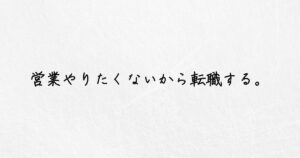 営業やりたくないから転職する。